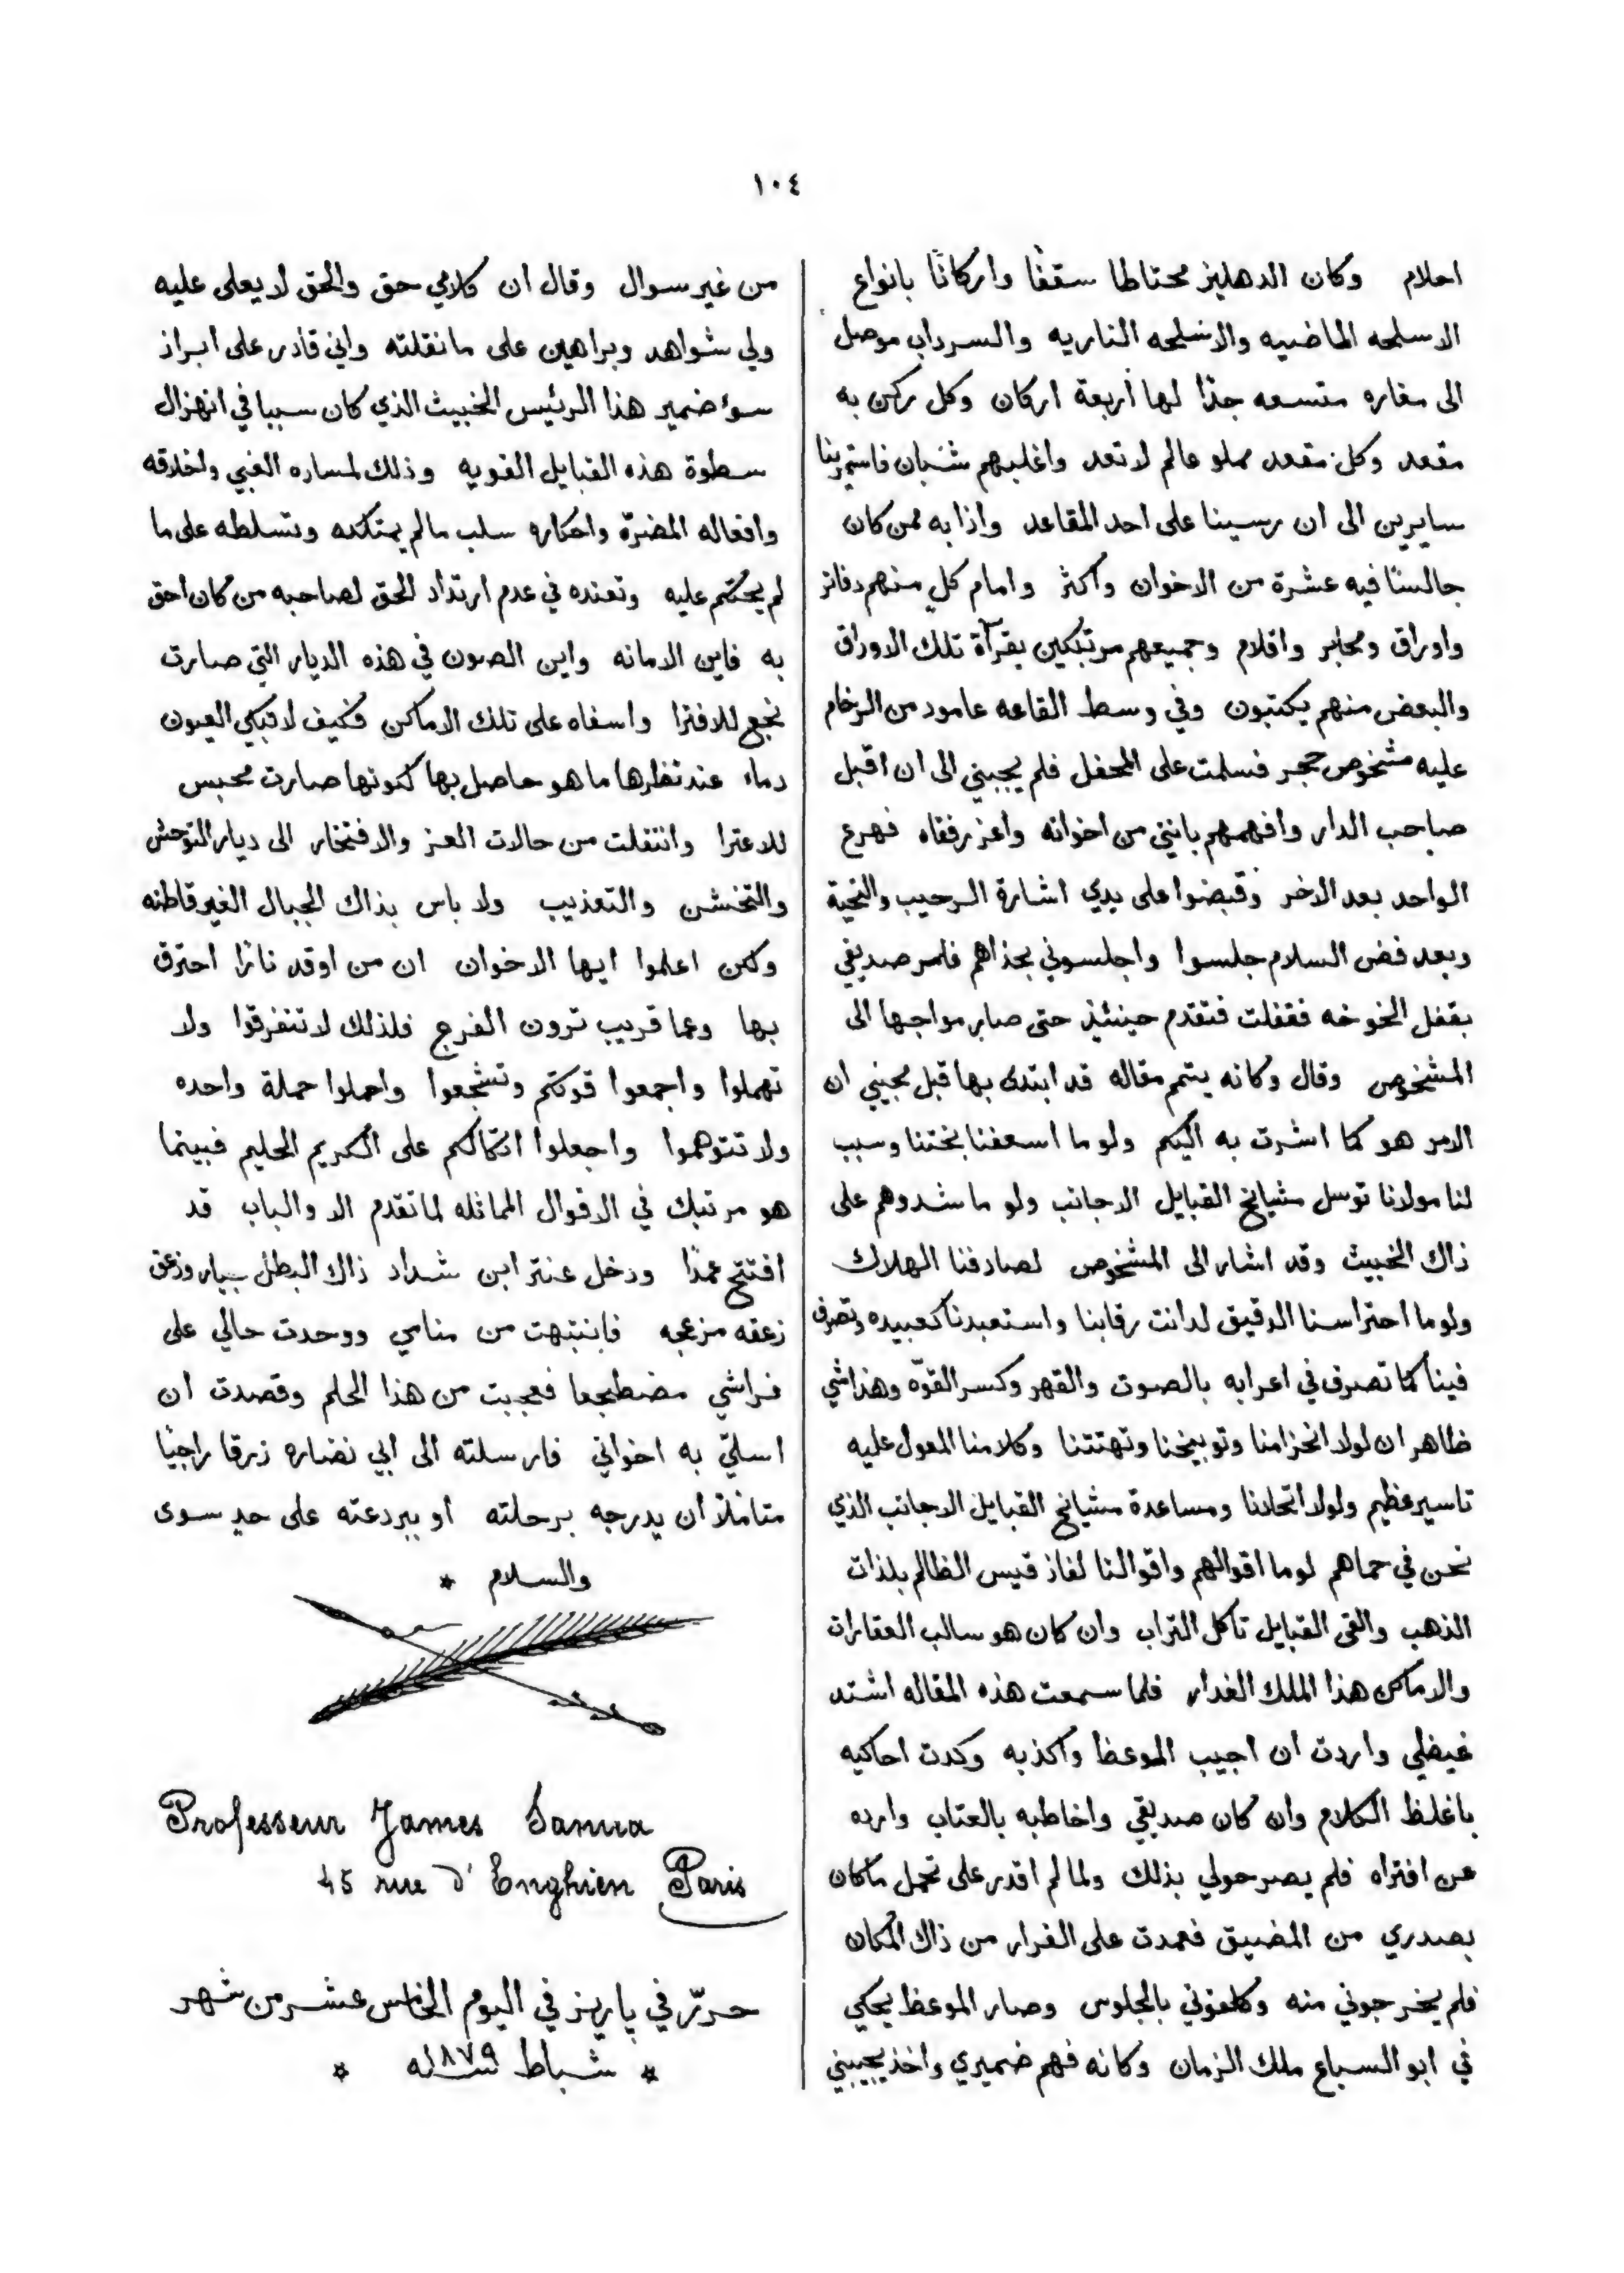 ١٠٤
احلام وكان الدهليز محتاطا سقفًا واركانًا بانواع
الاسلحه الماضيه والاسلحه الناريه والسرداب موصل
الى مغاره متسعه جدًا لها أربعة اركان وكل ركن به
مقعد وكل مقعد مملو عالم لا تعد واغلبهم شبان فاستمرينا
سايرين الى ان رسينا على احد المقاعد واذا به ممن كان
جالسًا فيه عشرة من الاخوان واكثر وامام كل منهم دفاتر
واوراق ومحابر واقلام وجميعهم مرتبكين بقرآة تلك الاوراق
والبعض منهم يكتبون وفي وسط القاعه عامود من الرخام
عليه مشخوص حجر فسلمت على المحفل فلم يجبني الى ان اقبل
صاحب الدار وافهمهم بانني من اخوانه واعز رفقاه فهرع
الواحد بعد الاخر وقبضوا على يدي اشارة الرحيب والتحية
وبعد فض السلام جلسوا واجلسوني بحذاهم فامر صديقي
بقفل الخوخه فقفلت فتقدم حينئذٍ حتى صار مواجها الى
المشخوص وقال وكانه يتمم مقاله قد ابتدى بها قبل مجيئي ان
الامر هو كما اشرت به اليكم ولو ما اسعفنا بختنا وسبب
لنا مولانا توسل مشيايخ القبايل الاجانب ولو ما شدوهم على
ذاك الخبيث وقد اشار الى المشخوص لصادفنا الهلاك
ولو ما احتراسنا الدقيق لدانت رقابنا واستعبدنا كعبيده وتصرف
فينا كما تصرف في اعرابه بالصوت والقهر وكسر القوّه وهذا شي
ظاهر ان لولا انحزامنا وتوبيخنا وتهتتنا وكلامنا المعول عليه
تاسير عظيم ولولا اتحادنا ومساعدة مشيايخ القبايل الاجانب الذي
نحن في حماهم لو ما اقوالهم واقوالنا لفاز قيس الظالم بلذات
الذهب والقى القبايل تاكل التراب وان كان هو سالب العقارات
والاماكن هذا الملك الغدار فلما سمعت هذه المقاله اشتد
غيضلي واردت ان اجيب الموعظ واكذبه وكدت احاكيه
باغلظ الكلام وان كان صديقي واخاطبه بالعتاب وارده
عن افتراه فلم يصر حولي بذلك ولما لم اقدر على تحمل ما كان
بصدري من المضيق فعمدت على الفرار من ذاك المكان
فلم يخرجوني منه وكلفوني بالجلوس وصار الموعظ يحكي
في ابو السباع ملك الزمان وكانه فهم ضميري واخذ يجيبني
من غير سوال وقال ان كلامي حق والحق لا يعلى عليه
ولي شواهد وبراهين على ما نقلته واني قادر على ابراز
سؤ ضمير هذا الرئيس الخبيث الذي كان سببا في انهزال
سطوة هذه القبايل القويه وذلك لمساره الغبي واخلاقه
وافعاله المضرّة واحكاره سلب مالم يمتلكه وتسلطه على ما
لم يحكم عليه وتعنده في عدم ارتداد الحق لصاحبه من كان احق
به فاين الامانه واين الصون في هذه الديار التي صارت
نجع للافترا واسفاه على تلك الاماكن فكيف لا تبكي العيون
دماء عند نظرها ما هو حاصل بها كونها صارت محبس
للاعترا وانتقلت من حالات العز والافتخار الى ديار التوحش
والتخشن والتعذيب ولا باس بذاك الجبال الغير قاطنه
ولكن اعلموا ايها الاخوان ان من اوقد نارًا احترق
بها وعما قريب ترون الفرج فلذلك لا تتفرقوا ولا
تهملوا واجمعوا قوتكم وتشجعوا واحملوا حملة واحده
ولا تتوهموا واجعلوا اتكالكم على الكريم الحليم فبينما
هو مرتبك في الاقوال المماثله لما تقدم الا والباب قد
افتتح عمدًا ودخل عنتر ابن شداد ذاك البطل وزعق
زعقه مزعجه فانتبهت من منامي ووجدت حالي على
فراشي مضطجعا فعجبت من هذا الحلم وقصدت ان
اسلّي به اخواني فارسلته الى ابي نضاره زرقا راجيًا
متاملاً أن يدرجه برحلته أو ببردعته على حدٍ سوى
والسلام *
Professeur James Sanua
45 rue d'Enghien Paris
حررّ في باريز في اليوم الخامس عشر من شهر
* شباط سنة ١٨٧٩ *